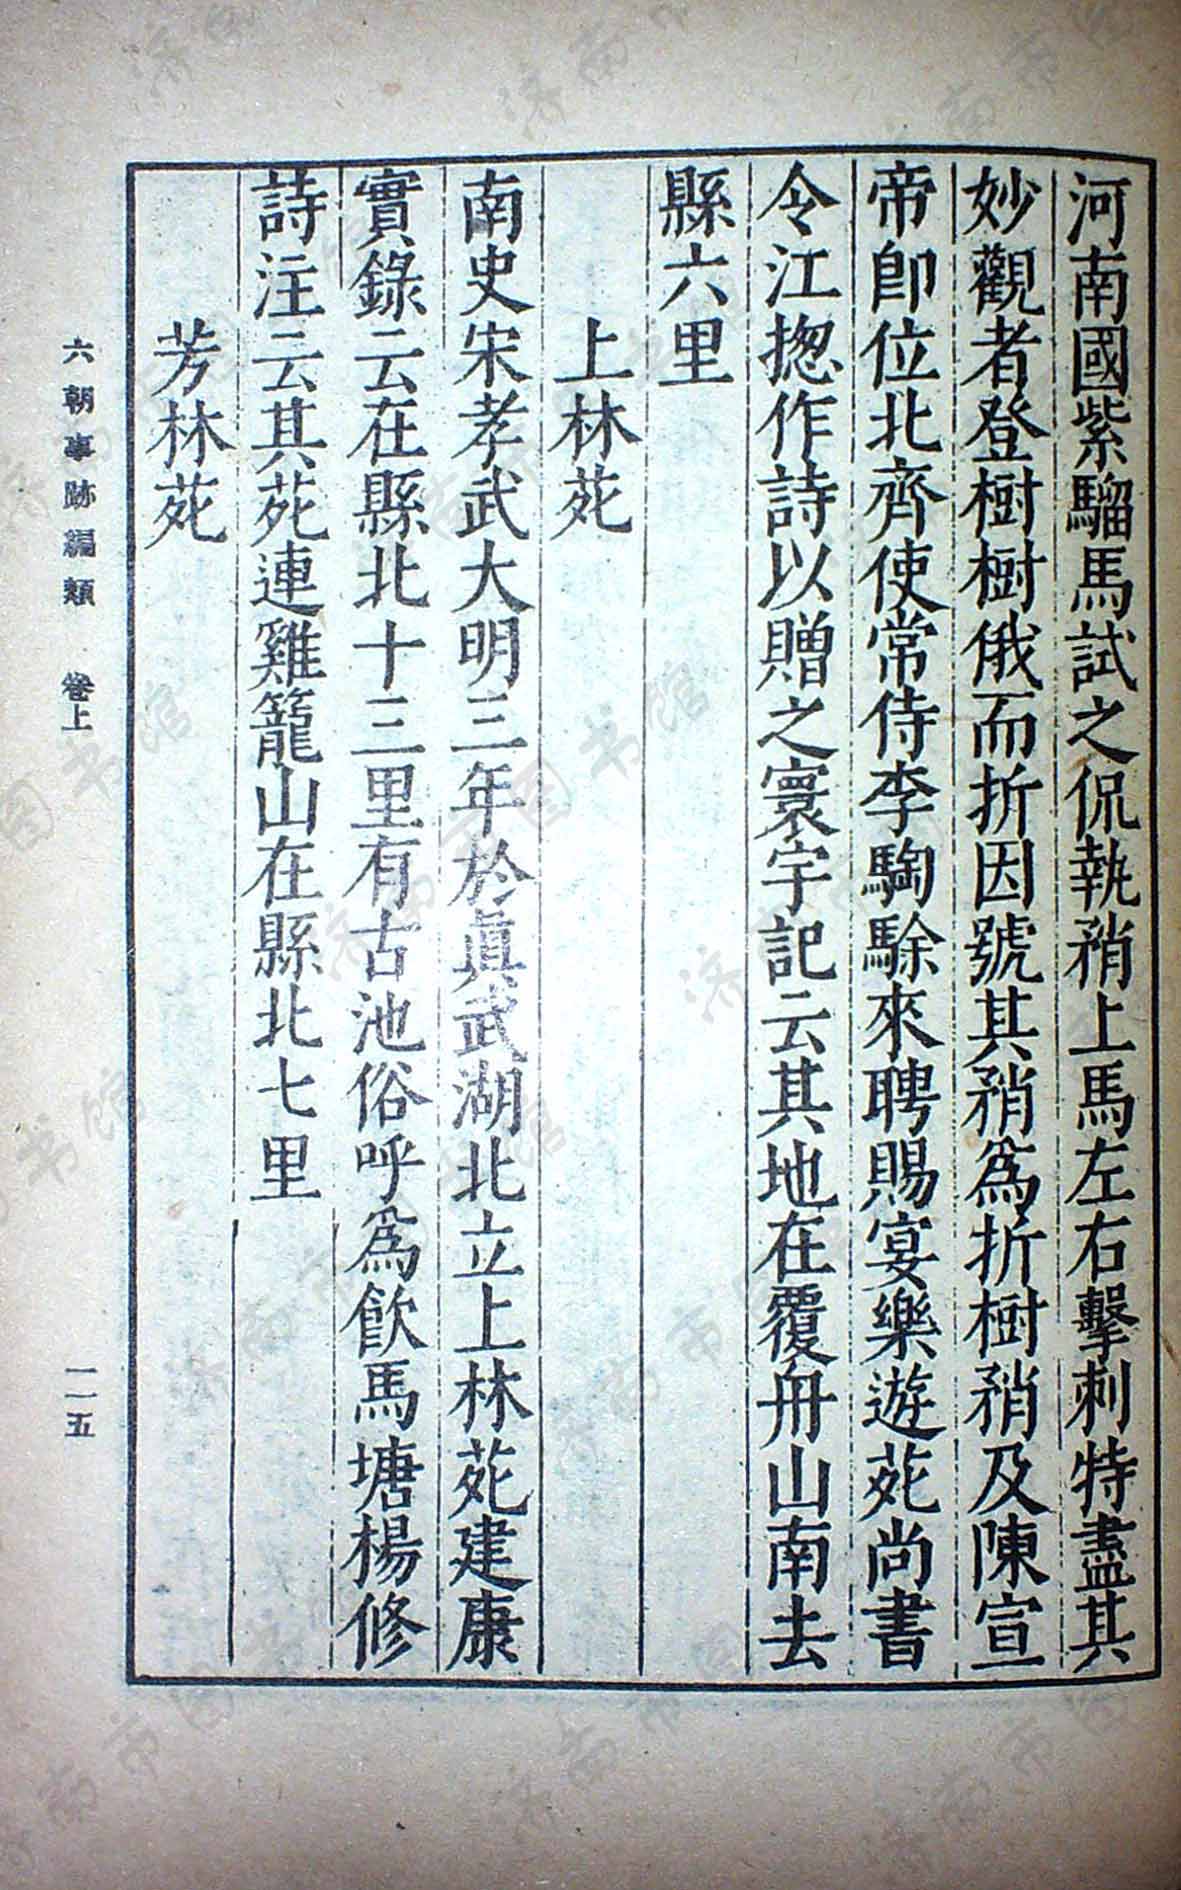 河南國紫騮馬試之侃執矟上馬左右擊刺特盡其
妙觀者登樹樹俄而折因號其矟為折樹矟及陳宣
帝即位北齊使常侍李騊駼來聘賜宴樂遊苑尚書
令江揔作詩以贈之寰宇記云其地在覆舟山南去
縣六里
上林苑
南史宋孝武大明三年於真武湖北立上林苑建康
實錄云在縣北十三里有古池俗呼為飲馬塘楊修
詩注云其苑連雞籠山在縣北七里
芳林苑
六朝事跡編類 卷上
一一五
济南市图书馆